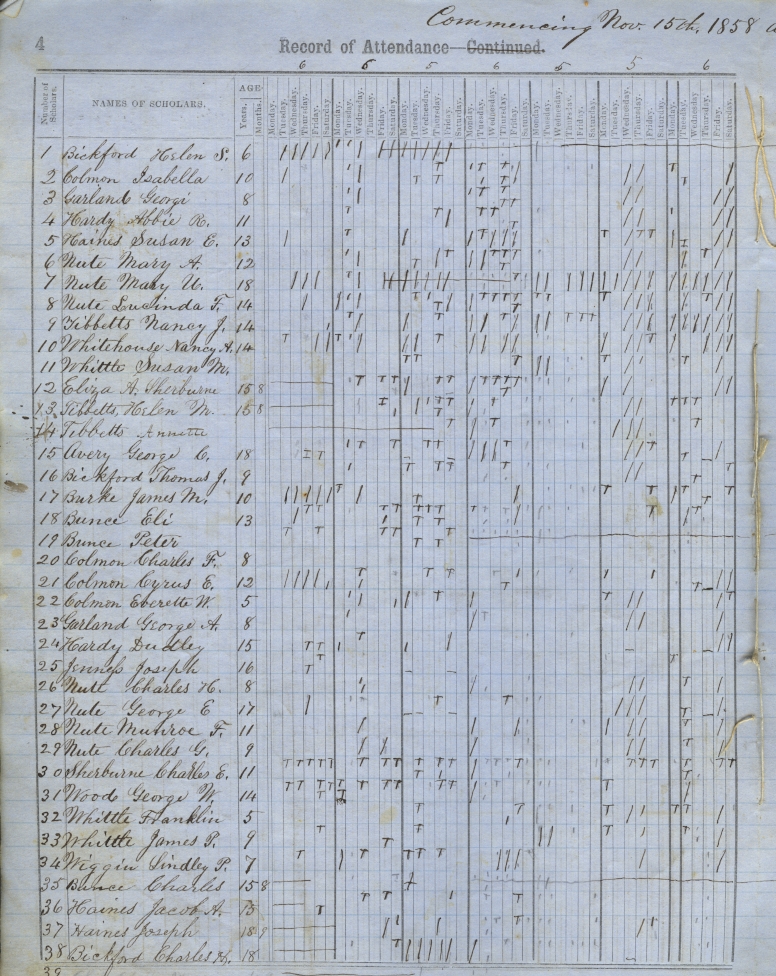 Commencing Nov. 15th, 1858
4 Record of Attendance—Continued.
6 6 5 6 5 5 6
Number of Scholars. NAMES OF SCHOLARS. AGE Years. Months. Monday. Tuesday. Wednesday. Thursday. Friday. Saturday.
1 Bickford Helen S. 6
2 Colmon Isabella 10
3 Garland Georgi 8
4 Hardy Abbie R. 11
5 Haines Susan E. 13
6 Nute Mary A. 12
7 Nute Mary U. 18
8 Nute Lucinda F. 14
9 Tibbetts Nancy J. 14
10 Whitehouse Nancy A. 14
11 Whittle Susan M.
12 Eliza A. Sherburne 15 8
13 Tibbetts, Helen M. 15 8
14 Tebbetts Annette
15 Avery George C. 18
16 Bickford Thomas J. 9
17 Burke James M. 10
18 Bunce Eli 13
19 Bunce Peter
20 Colmon Charles F. 8
21 Colmon Cyrus E. 12
22 Colmon Everette W. 5
23 Garland George A. 8
24 Hardy Dudley 15
25 Jenness Joseph 16
26 Nute Charles H. 8
27 Nute George E 17
28 Nute Munroe F. 11
29 Nute Charles G. 9
30 Sherburne Charles E. 11
31 Wood George W. 14
32 Whittle Franklin 5
33 Whittle James P. 9
34 Wiggin Lindley P. 7
35 Bunce Charles 15 8
36 Haines Jacob A. 15
37 Haines Joseph 18 9
38 Bickford Charles H. 18
39